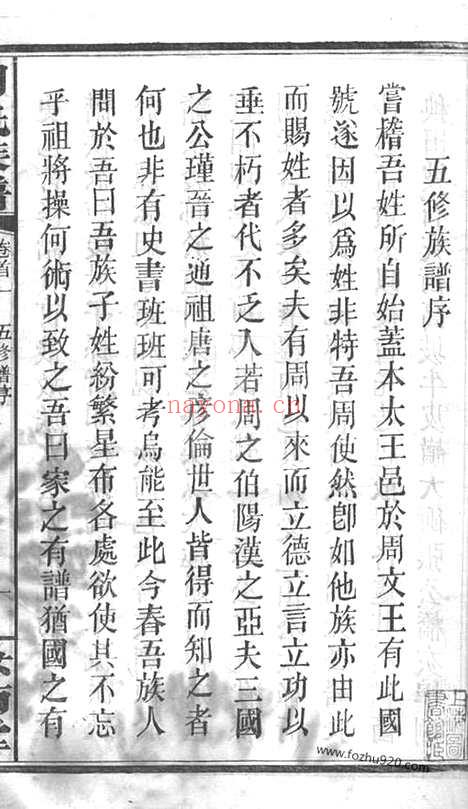 五修族譜序
嘗稽吾姓所自始蓋本太王邑於周文王有此國
號遂因以爲姓非特吾周使然卽如他族亦由此
而賜姓者多矣夫有周以來而立德立言立功以
垂不朽者代不乏人若周之伯陽漢之亞夫三國
之公瑾晉之通祖唐之彥倫世人皆得而知之者
何也非有史書班班可考烏能至此今春吾族人
問於吾曰吾族子姓紛繁星布各處欲使其不忘
乎祖將操何術以致之吾曰家之有譜猶國之有
氏族譜
卷首
五修譜序
一
nayona.cn
www.fozhu920.com